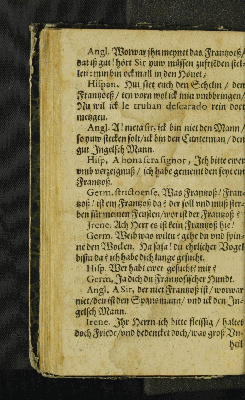 Angl. Worwar ihn meynet das Frantzoeß/
dat iß gut! hört Sir yuw müssen zufrieden stel-
len: nun bin ick mall in den Höuet,
Hispan. Nu siet euch den Schelm / den
Frantzoeß / ten vorn wol ick min umbbringen/
Nu wil ick le truhan descarado rein doet
meygen.
Angl. A! meta sir, ick bin niet den Mann /
so yuw stecken solt/ ick bin den Cunterman / den
gut Ingelsch Mann.
Hisp. A honasera signor, Ich bitte ewer
umb verzeignuß / ich habe gemeint den seyt ein
Frantzoß.
Germ. strictoense. Was Frantzoß? Fran-
tzoß? ist ein Frantzoß da? der soll und muß ster-
ben für meinen Feusten/ wor ist der Frantzoß?
Irene. Ach Herr es ist kein Frantzoß hie?
Germ. Weib was wiltu? gehe du und spin-
ne den Wocken. Ha sasa! du ehrlicher Vogel
bistu da? ich habe dich lange gesucht.
Hisp. Wer habt ewer gesucht? mir?
Germ. Ja dich du Frantzösischer Hundt.
Angl. A Sir, der niet Frantzoß ist / worwar
niet/ den ist den Spansmann/ und ick den In-
gelsch Mann.
Irene. Ihr Herrn ich bitte fleissig / haltet
doch Friede/ und bedencket doch/ was groß Un-
heil